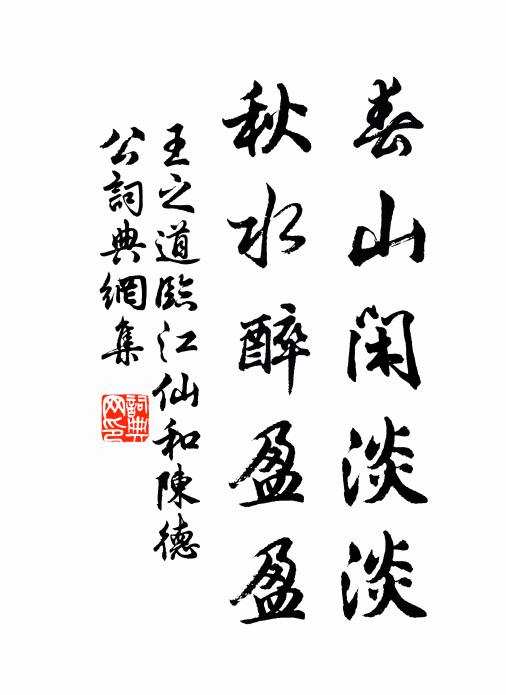 春山闲淡淡
秋水醉盈盈
王之道臨江仙和陳德
公詞典網集
詞典网印